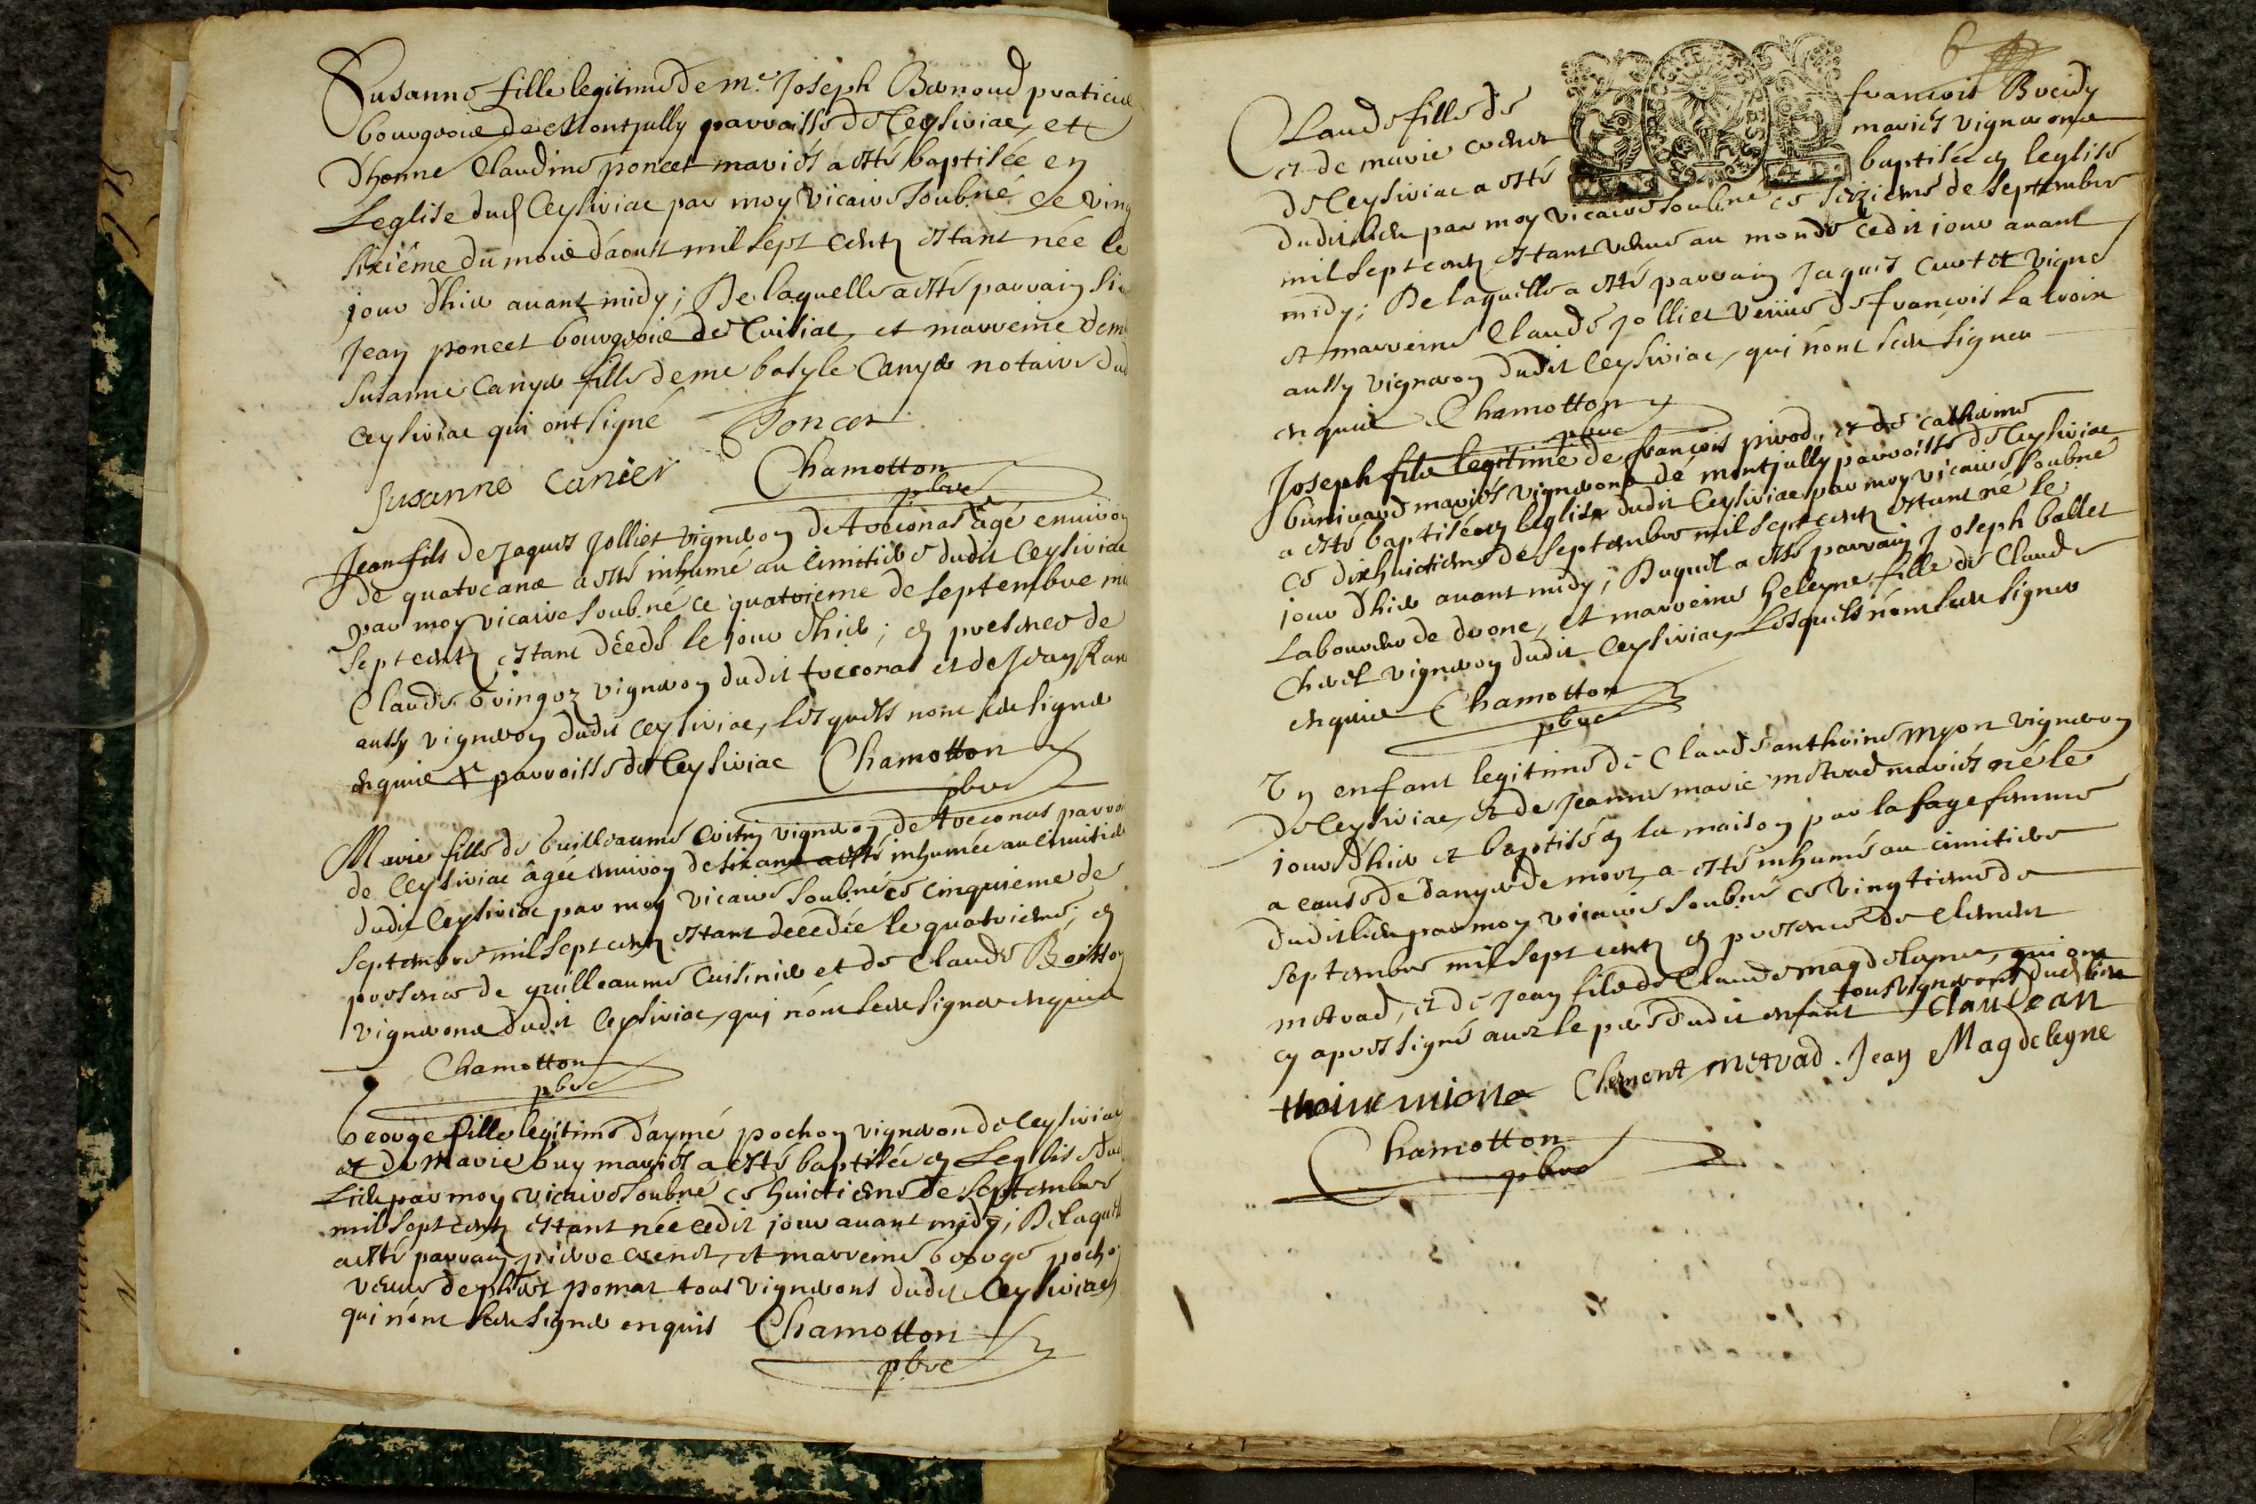 Susanne fille legitime de me Joseph Bernoud praticien
bourgeois de Montjully parroisse de Ceysiriac, et
d'honne Claudine poncet mariés a esté baptisée en
Leglise dud Ceysiriac par moy vicaire soubné ce ving
sixième du mois d'aoust mil sept centz estant née le
jour d'hier auant midy; De laquelle a esté parrain
Jean poncet bourgeois de Cuisiat, et marreine
Susanne Canyer fille de me basyle Canyer notaire dud
Ceysiriac qui ont signé Poncet
Susanne Canier Chamotton
pbre
Jean fils de Jaques Jolliet vigneron de treconas âgé enuiron
de quatre ans a esté inhumé au cimitiere dudit Ceysiriac
par moy vicaire soubné ce quatrieme de septembre mil
sept centz estant décedé le jour d'hier; en presence de
Claude vigneron dudit treconas et de Jean
aussy vigneron dudit Ceysiriac, lesquels n'ont sceu signer
enquis parroisse de Ceysiriac Chamotton
pbre
Marie fille de Guilleaume vigneron de treconas parroi
de Ceysiriac âgée enuiron de six ans a esté inhumée au cimitiere
dudit Ceysiriac par moy vicaire soubné ce cinquieme de
septembre mil sept centz estant décedée le quatrieme, en
presence de guilleaume Cuisinier et de Claude
vignerons dudit Ceysiriac, qui n'ont sceu signer enquis
Chamotton
pbre
George fille legitime d'aymé pochon vigneron de Ceysiriac
et de Marie buy mariés a esté baptisée en Leglise dud
Lieu par moy vicaire soubné ce huictieme de septembre
mil sept centz estant née cedit jour auant midy; De laquelle
a esté parrain pierre et marreine George pochon
veuue de pomat tous vignerons dudit Ceysiriac
qui n'ont sceu signer enquis Chamotton
pbre
6
Claude fille de françois Breidy
et de marie mariés vignerons
de Ceysiriac a esté baptisée en leglise
dudit lieu par moy vicaire soubné ce seizieme de septembre
mil sept centz estant venue au monde cedit jour auant
midy; De laquelle a esté parrain Jaques Curtet vigne
et marreine Claude Jolliet veuue de françois La croix
aussy vigneron dudit Ceysiriac, qui n'ont sceu signer
enquis Chamotton
pbre
Joseph fils legitime de françois pirod, et de catherine
buniuard mariés vignerons de montjully parroisse de Ceysiriac
a esté baptisé en leglise dudit Ceysiriac par moy vicaire soubné
ce dixhuictieme de septembre mil sept centz estant né le
jour d'hier auant midy; Duquel a esté parrain Joseph ballet
Laboureur de drone, et marreine heleyne fille de Claude
vigneron dudit Ceysiriac, Lesquels n'ont sceu signer
enquis Chamotton
pbre
Un enfant legitime de Claude anthoine myon vigneron
de Ceysiriac, et de Jeanne marie metrad mariés né le
jour d'hier et baptisé en la maison par la sage femme
a cause de danger de mort, a esté inhumé au cimitiere
dudit lieu par moy vicaire soubné ce vingtieme de
septembre mil sept centz en presence de Clement
metrad, et de Jean fils de Claude magdelayne, qui ont
tous vignerons dud lieu
cy apres signé auec le pere dudit enfant Claude an
thoine mione Clement metrad. Jean Magdeleyne
Chamotton
pbre